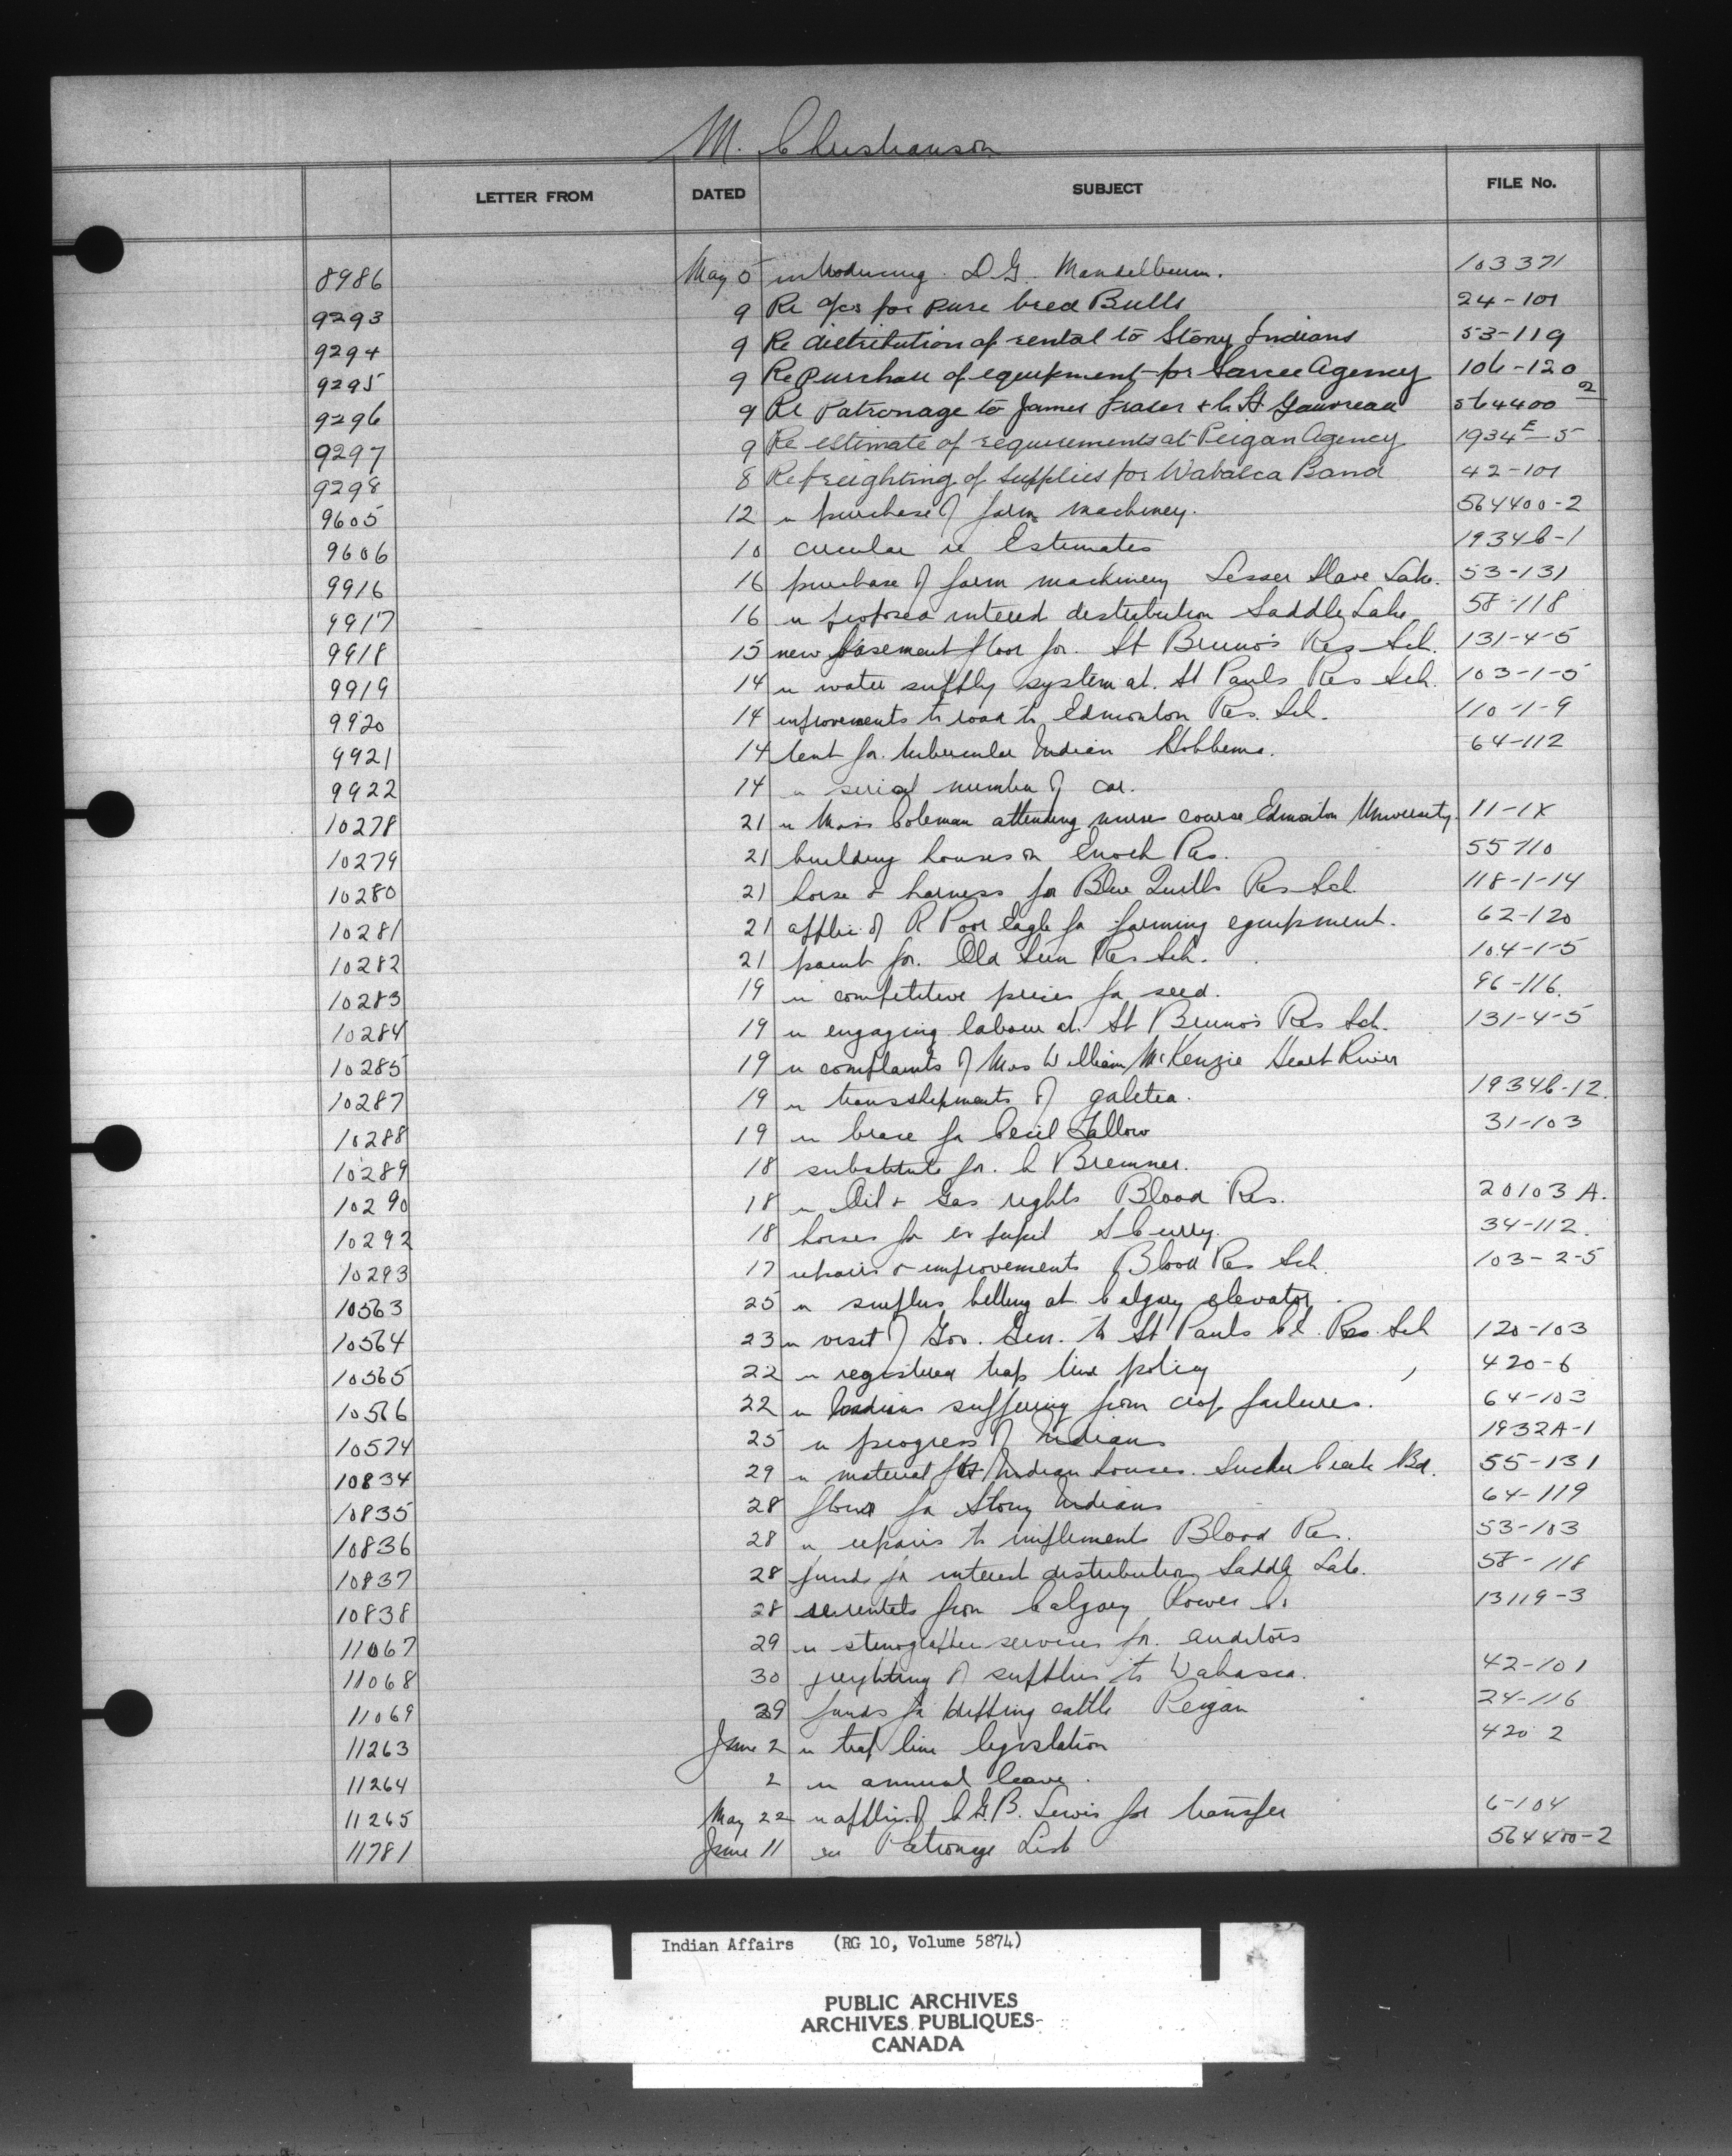 M. Christianson
LETTER FROM DATED SUBJECT FILE No.
8986 May 5 introducing D.G. Mandelbaum. 103371
9293 9 Re a/cs for pure bred Bulls 24-101
9294 9 Re distribution of rental to Stony Indians 53-119
9295 9 Re purchase of equipment for Sarcee Agency 106-120
9296 9 Re Patronage to James Fraser + C. H. Gauvreau 564400-2
9297 9 Re estimate of requirements at Peigan Agency 1934E-5
9298 8 Re freighting of supplies for Wabasca Band 42-101
9605 12 re purchase of farm machinery. 564400-2
9606 10 circular re Estimates 1934C-1
9916 16 purchase of farm machinery Lesser Slave Lake. 53-131
9917 16 re proposed interest distribution Saddle Lake 58-118
9918 15 new basement floor for St Bruno's Res Sch. 131-4-5
9919 14 re water supply system at St Pauls Res Sch. 103-1-5
9920 14 improvements to road to Edmonton Res. Sch. 110-1-9
9921 14 tent for tubercular Indian Hobbema. 64-112
9922 14 re serial number of car.
10278 21 re Miss Coleman attending nurses course Edmonton University. 11-1X
10279 21 building houses on Enoch Res. 55-110
10280 21 horse & harness for Blue Quills Res Sch 118-1-14
10281 21 applic of R Poor Eagle for farming equipment. 62-120
10282 21 paint for Old Sun Res Sch. 104-1-5
10283 19 re competitive prices for seed. 96-116.
10284 19 re engaging labour at St Bruno's Res Sch. 131-4-5
10285 19 re complaints of Mrs William McKenzie Heart River
10287 19 re transshipments of galetea. 1934C-12.
10288 19 re brace for Cecil Tallow 31-103
10289 18 substitute for C Bremner.
10290 18 re Oil & Gas rights Blood Res. 20103 A.
10292 18 horses for ex pupil S Curry. 34-112.
10293 17 repairs & improvements Blood Res Sch. 103-2-5
10563 25 re surplus belting at Calgary elevator.
10564 23 re visit of Gov. Gen. to St Pauls CE. Res. Sch 120-103
10565 22 re registered trap line policy 420-6
10566 22 re Indians suffering from crop failures. 64-103
10574 25 re progress of Indians 1932A-1
10834 29 re material for Indian houses. Sucker Creek Bd. 55-131
10835 28 flour for Stony Indians 64-119
10836 28 re repairs to implements Blood Res. 53-103
10837 28 funds for interest distribution Saddle Lake. 58-118
10838 28 re rentals from Calgary Power Co 13119-3
11067 29 re stenographer services for auditors
11068 30 freighting of supplies to Wabasca. 42-101
11069 29 funds for dipping cattle Peigan 24-116
11263 June 2 re trap line legislation 420 2
11264 2 re annual leave.
11265 May 22 re applic. of C.G.B. Lewis for transfer 6-104
11781 June 11 re Patronage List 564400-2
Indian Affairs (RG 10, Volume 5874)
PUBLIC ARCHIVES
ARCHIVES PUBLIQUES
CANADA